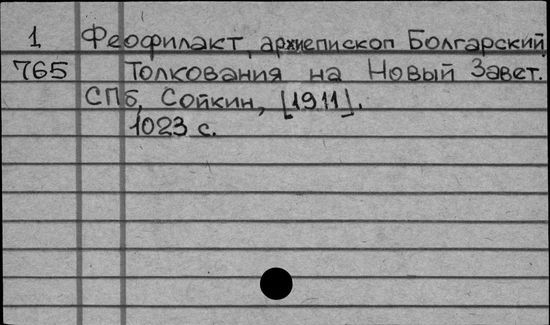 1 Феофилакт, архиепископ Болгарский.
765 Толкования на Новый Завет.
СПб, Сойкин, [1911].
1023 с.